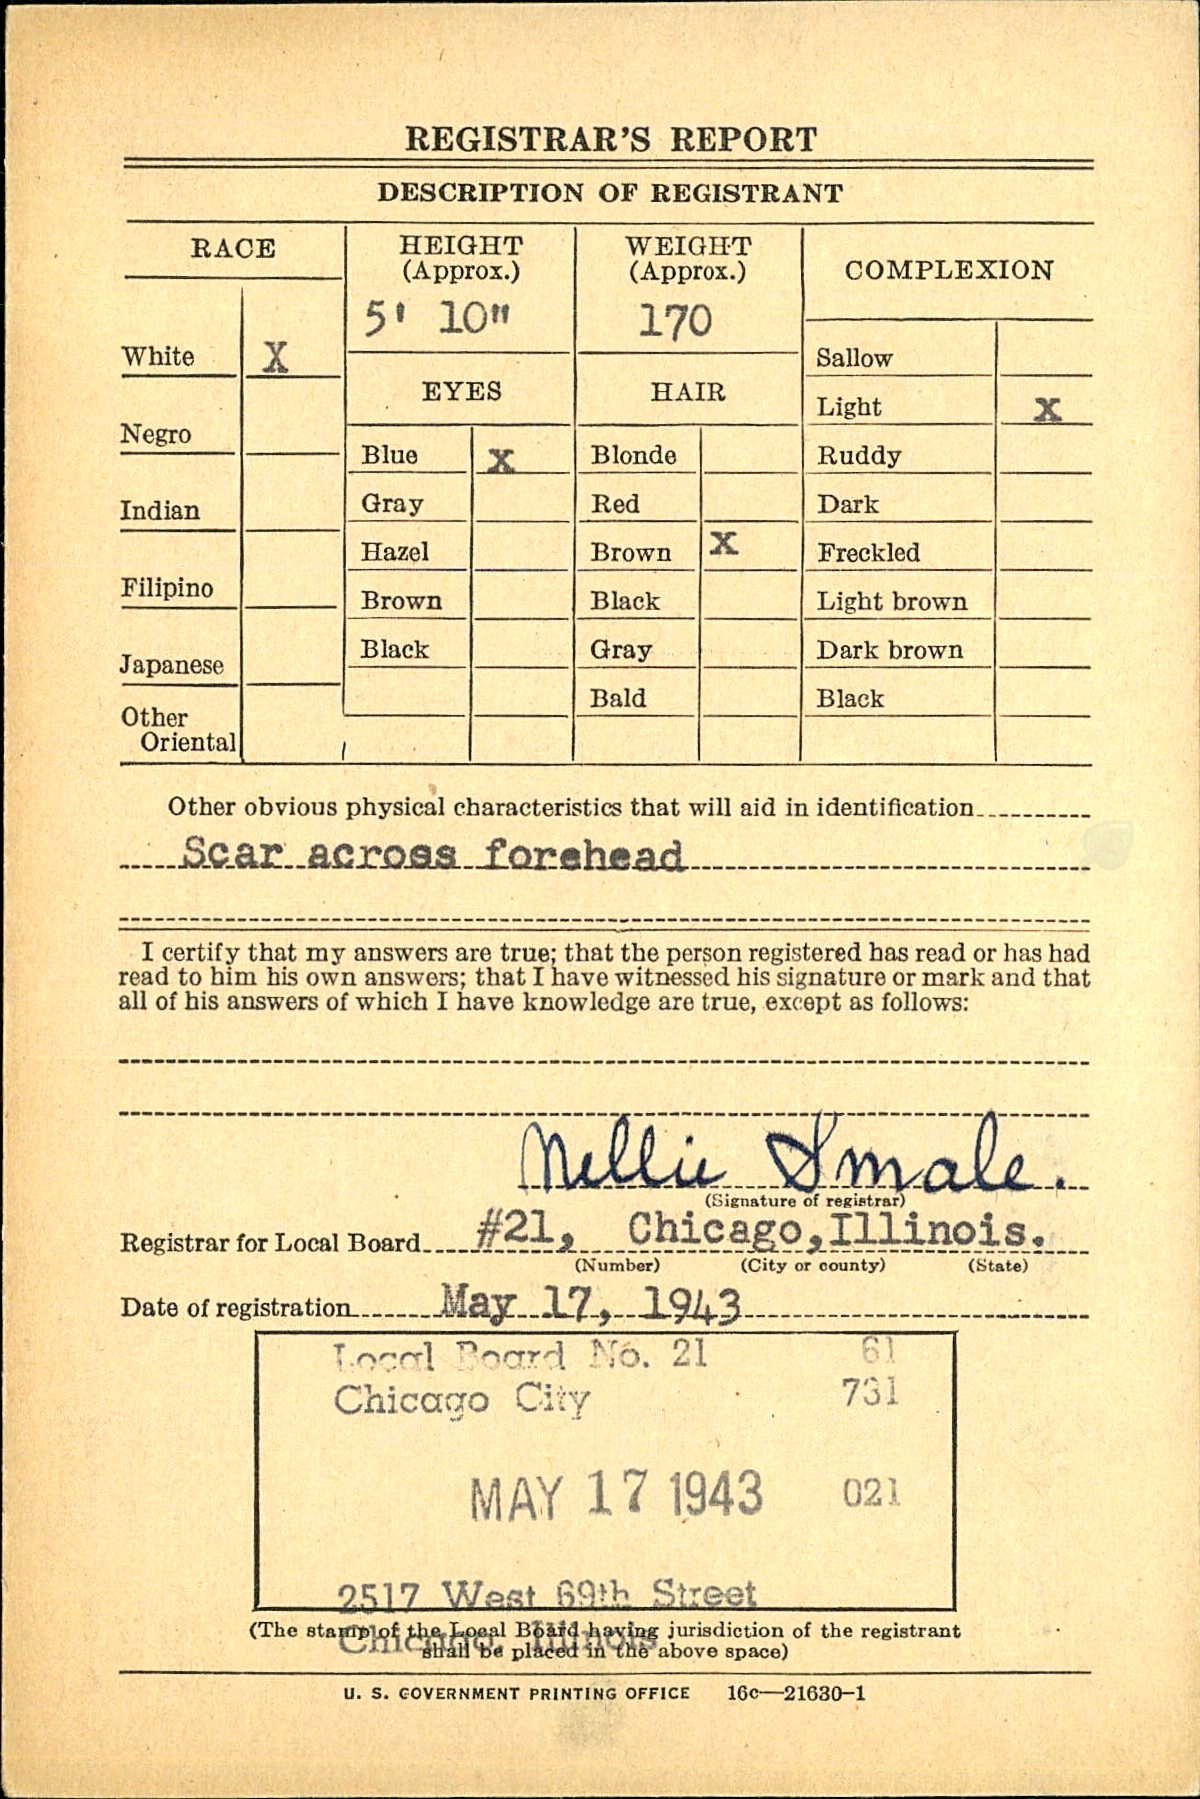 REGISTRAR'S REPORT
DESCRIPTION OF REGISTRANT
RACE
HEIGHT
(Approx.)
WEIGHT
(Approx.)
COMPLEXION
5' 10"
170
White X
Sallow
EYES
HAIR
Light X
Negro
Blue X
Blonde
Ruddy
Indian
Gray
Red
Dark
Hazel
Brown X
Freckled
Filipino
Brown
Black
Light brown
Japanese
Black
Gray
Dark brown
Bald
Black
Other
Oriental
Other obvious physical characteristics that will aid in identification
Scar across forehead
I certify that my answers are true; that the person registered has read or has had
read to him his own answers; that I have witnessed his signature or mark and that
all of his answers of which I have knowledge are true, except as follows:
Nellie Smale.
(Signature of registrar)
Registrar for Local Board #21, Chicago, Illinois.
(Number) (City or county) (State)
Date of registration May 17, 1943
Local Board No. 21 61
Chicago City 731
MAY 17 1943 021
2517 West 69th Street
Chicago, Illinois
(The stamp of the Local Board having jurisdiction of the registrant
shall be placed in the above space)
U. S. GOVERNMENT PRINTING OFFICE 16c—21630-1